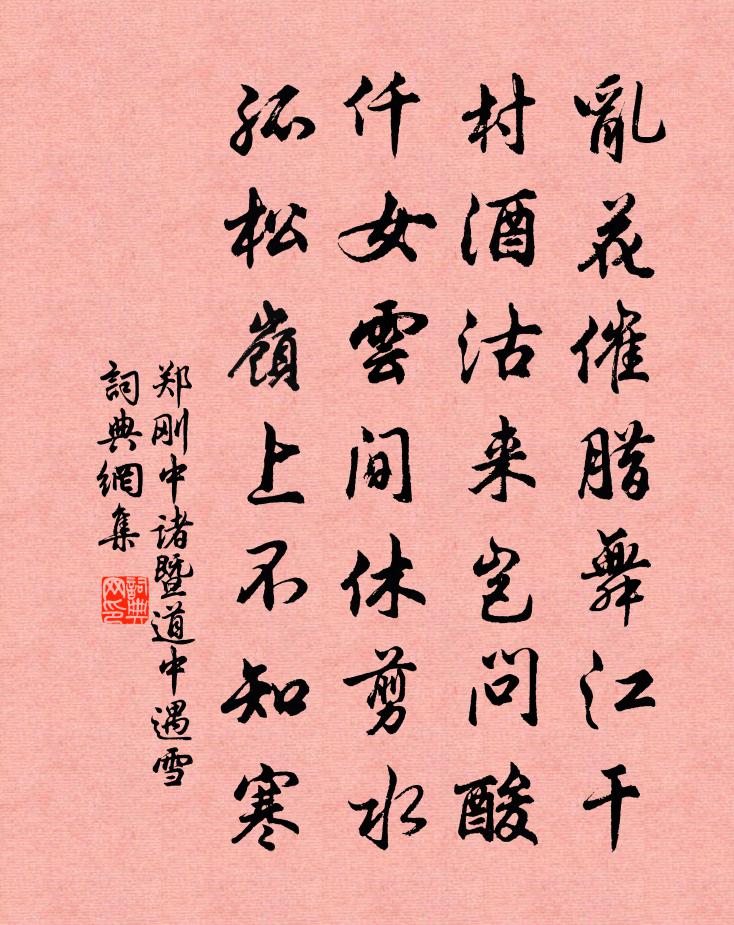 亂花催腊舞江干
村酒沽来岂问酸
仟女雲间休剪水
孤松嶺上不知寒
郑刚中诸暨道中遇雪
詞典網集
詞典网印